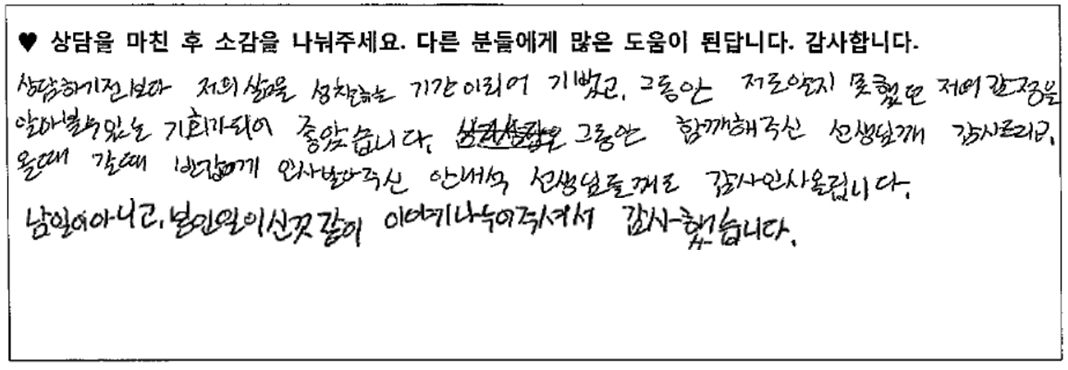 ♥ 상담을 마친 후 소감을 나눠주세요. 다른 분들에게 많은 도움이 된답니다. 감사합니다.
상담하기전보다 저의 삶을 성찰하는 기간이되어 기뻤고, 그동안 저도알지 못했던 저의 감정을
알아볼수있는 기회가되어 좋았습니다. 그동안 함께해주신 선생님께 감사드리고,
올때 갈때 반갑게 인사받아주신 안내석 선생님들께도 감사인사올립니다.
남일이아니고, 본인일이신것 같이 이야기나누어주셔서 감사했습니다.